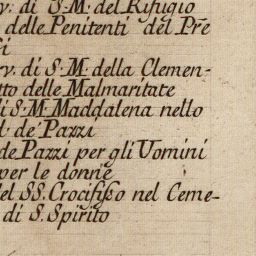 v. di S. M. del Rifugio
delle Penitenti del Pr̃e
i
rv. di S. M. della Clemen-
tto delle Malmaritate
di S. M. Maddalena nello
d. de' Pazzi
de Pazzi per gli Uomini
per le donne
del SS. Crocifisso nel Ceme-
di S. Spirito